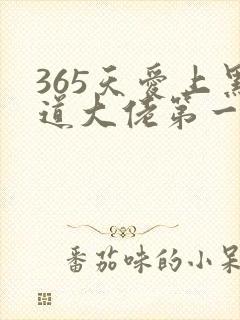 365天爱上黑
道大佬第一
番茄味的小呆